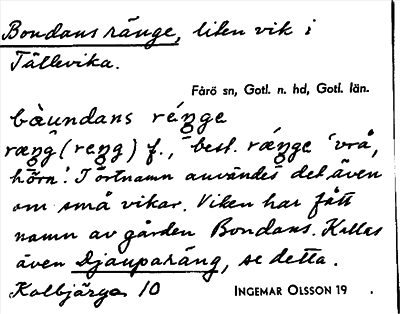 Bondans ränge, liten vik i
Tällevika.
Fårö sn, Gotl. n. hd, Gotl. län.
bàundans réŋge
ræŋg (reŋg) f., best. ræŋge 'vrå,
hörn'. I ortnamn användes det även
om små vikar. Viken har fått
namn av gården Bondans. Kallas
även Djauparäng, se detta.
Kalbjärga 10
INGEMAR OLSSON 19 .